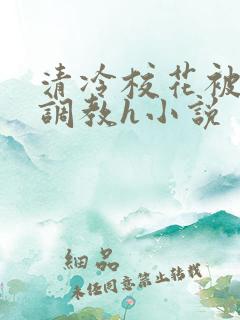 清冷校花被
調教h小說
細品
未任同意禁止转载